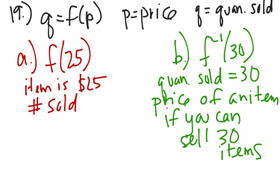 19.) q=f(p) p=price q=quan. sold
a.) f(25)
item is $25
# sold
b.) f⁻¹(30)
quan sold = 30
price of an item
if you can
sell 30
items